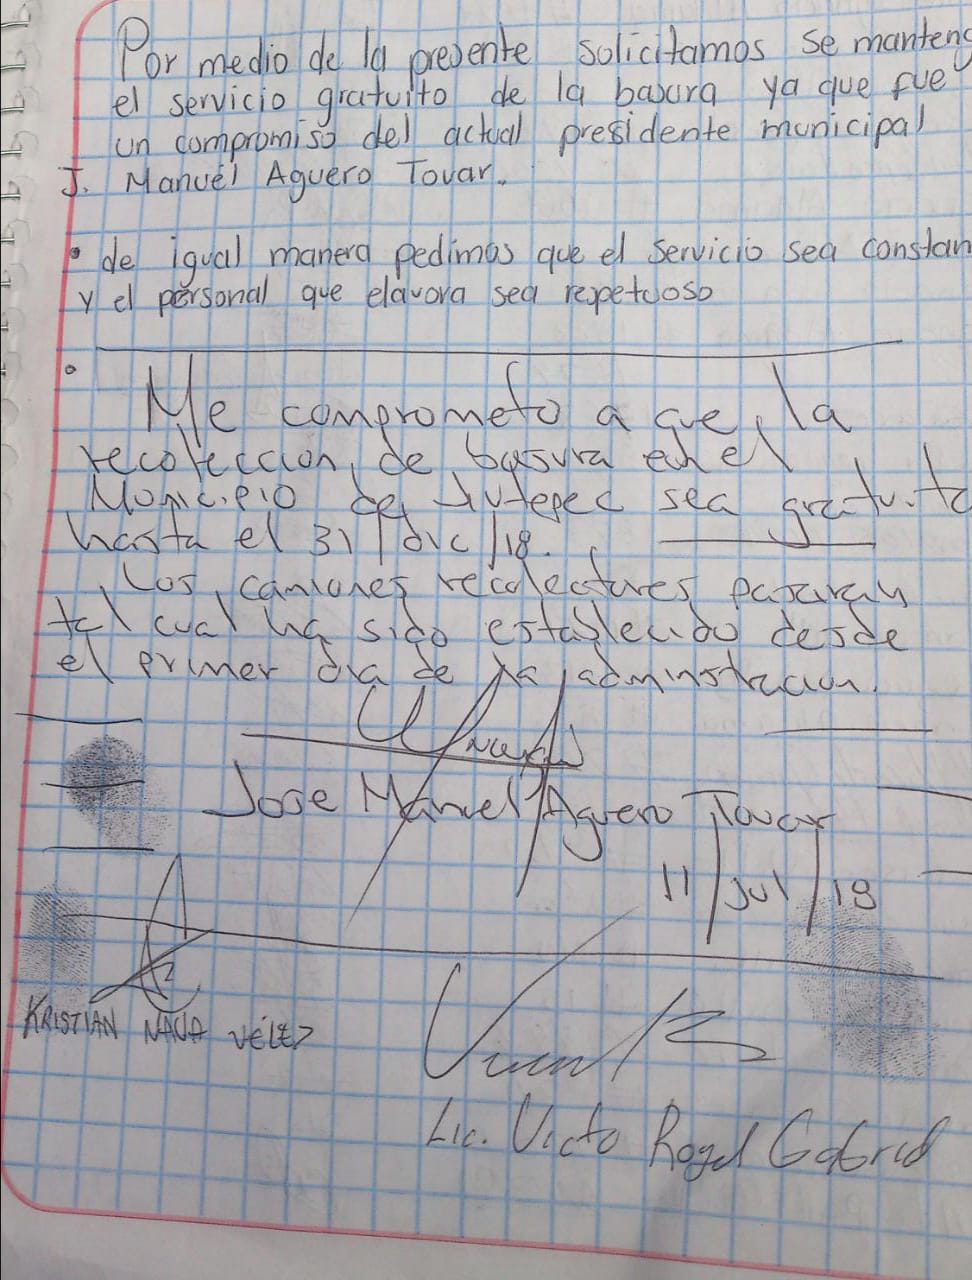 Por medio de la presente solicitamos se manteng
el servicio gratuito de la basura ya que fue
un compromiso del actual presidente municipal
J. Manuel Aguero Tovar.
• de igual manera pedimos que el servicio sea constan
y el personal que elavora sea respetuoso
Me comprometo a que la
recoleccion de basura en el
Municipio de Jiutepec sea gratuita
hasta el 31/dic/18.
Los camiones recolectores pasaran
tal cual ha sido establecido desde
el primer dia de la administracion.
Jose Manuel Aguero Tovar
11/Jul/18
KRISTIAN NAVA VÉLEZ
Lic. Victo Rogel Gabriel